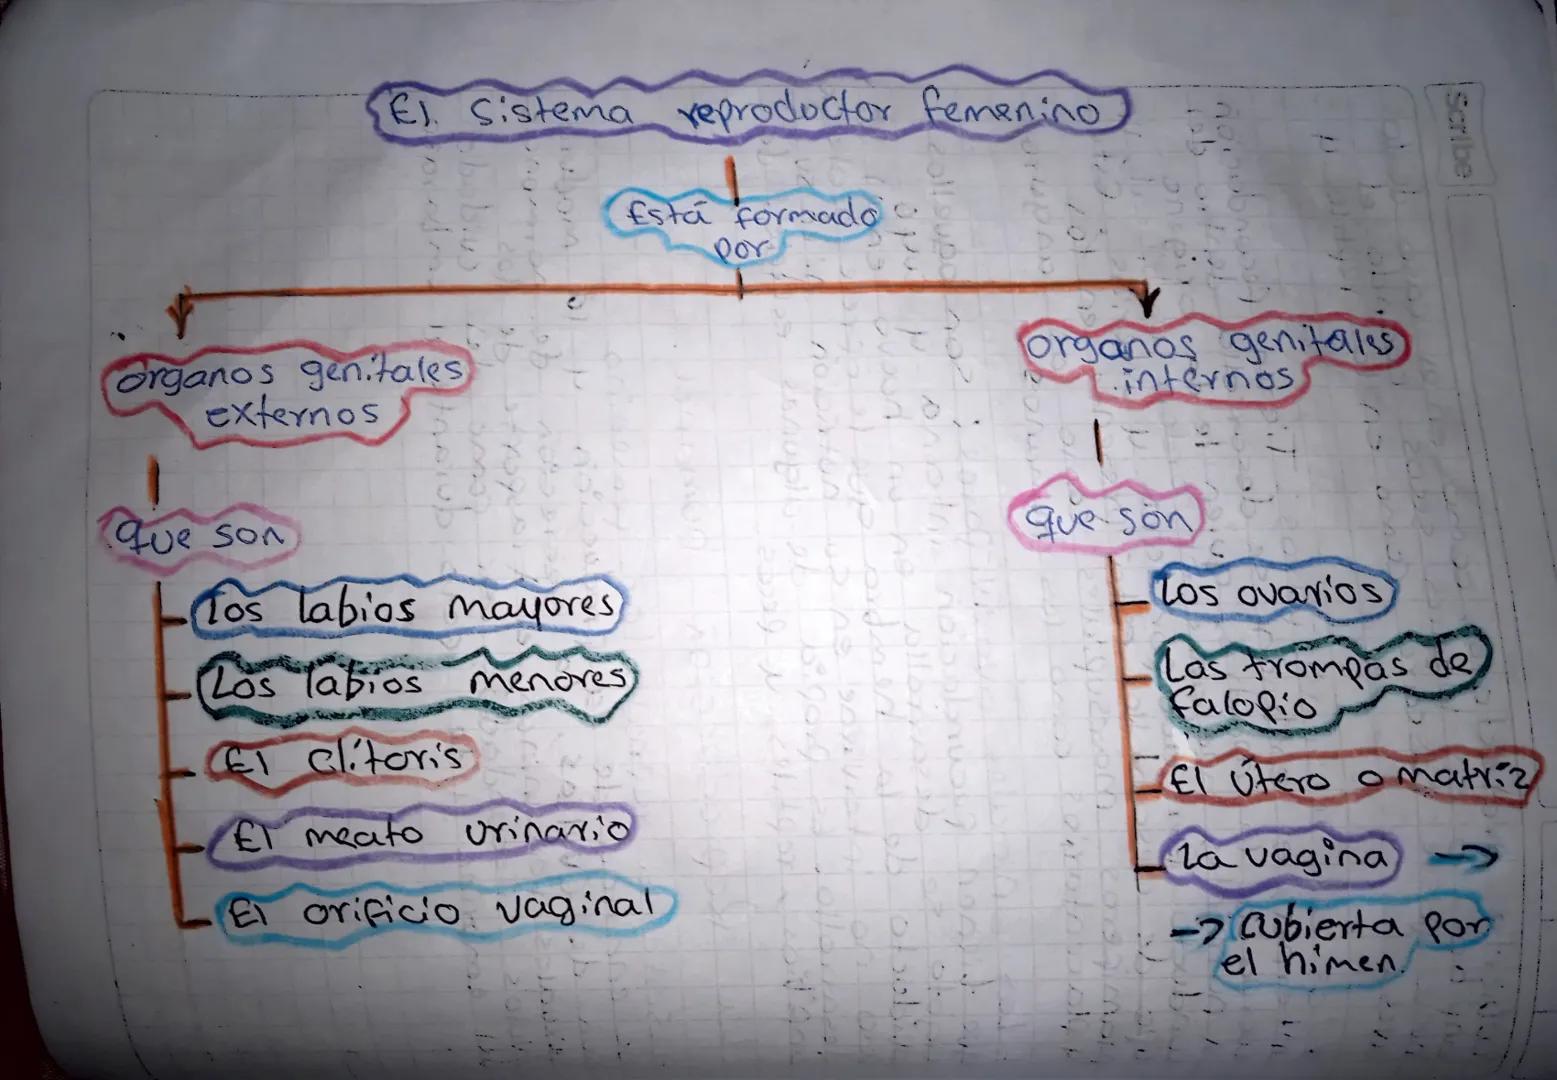 El sistema reproductor femenino
Está formado
por
organos genitales
externos
que son
Los labios mayores
Los labios menores
El clítoris
El meato urinario
El orificio vaginal
organos genitales
internos
que son
Los ovarios
Las trompas de
falopio
El útero o matriz
La vagina →
→ cubierta por
el himen.
Scribe